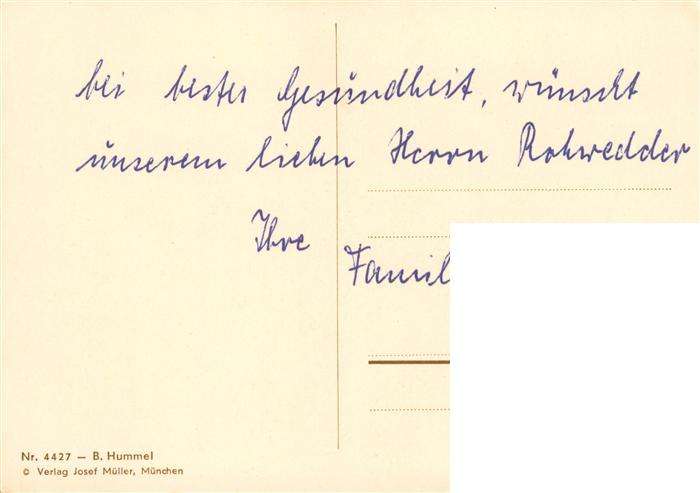 bei bester Gesundheit, wünscht
unserem lieben Herrn Rohwedder
Ihre
Famil
Nr. 4427 — B. Hummel
© Verlag Josef Müller, München